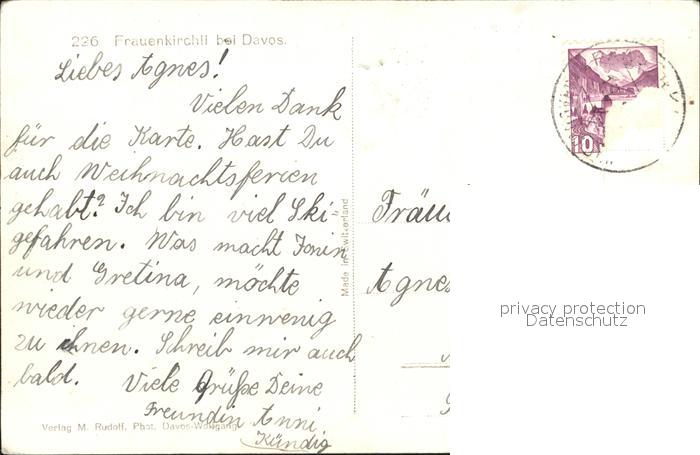 226 Frauenkirchli bei Davos.
Liebes Agnes!
Vielen Dank
für die Karte. Hast Du
auch Weihnachtsferien
gehabt? Ich bin viel Ski-
gefahren. Was macht
und Gretina, möchte
wieder gerne einwenig
zu ihnen. Schreib mir auch
bald. Viele Grüße Deine
Freundin Anni
Kündig
Verlag M. Rudolf, Phot. Davos-Wolfgang
Made in Switzerland
10
Fräu
Agnes
privacy protection
Datenschutz